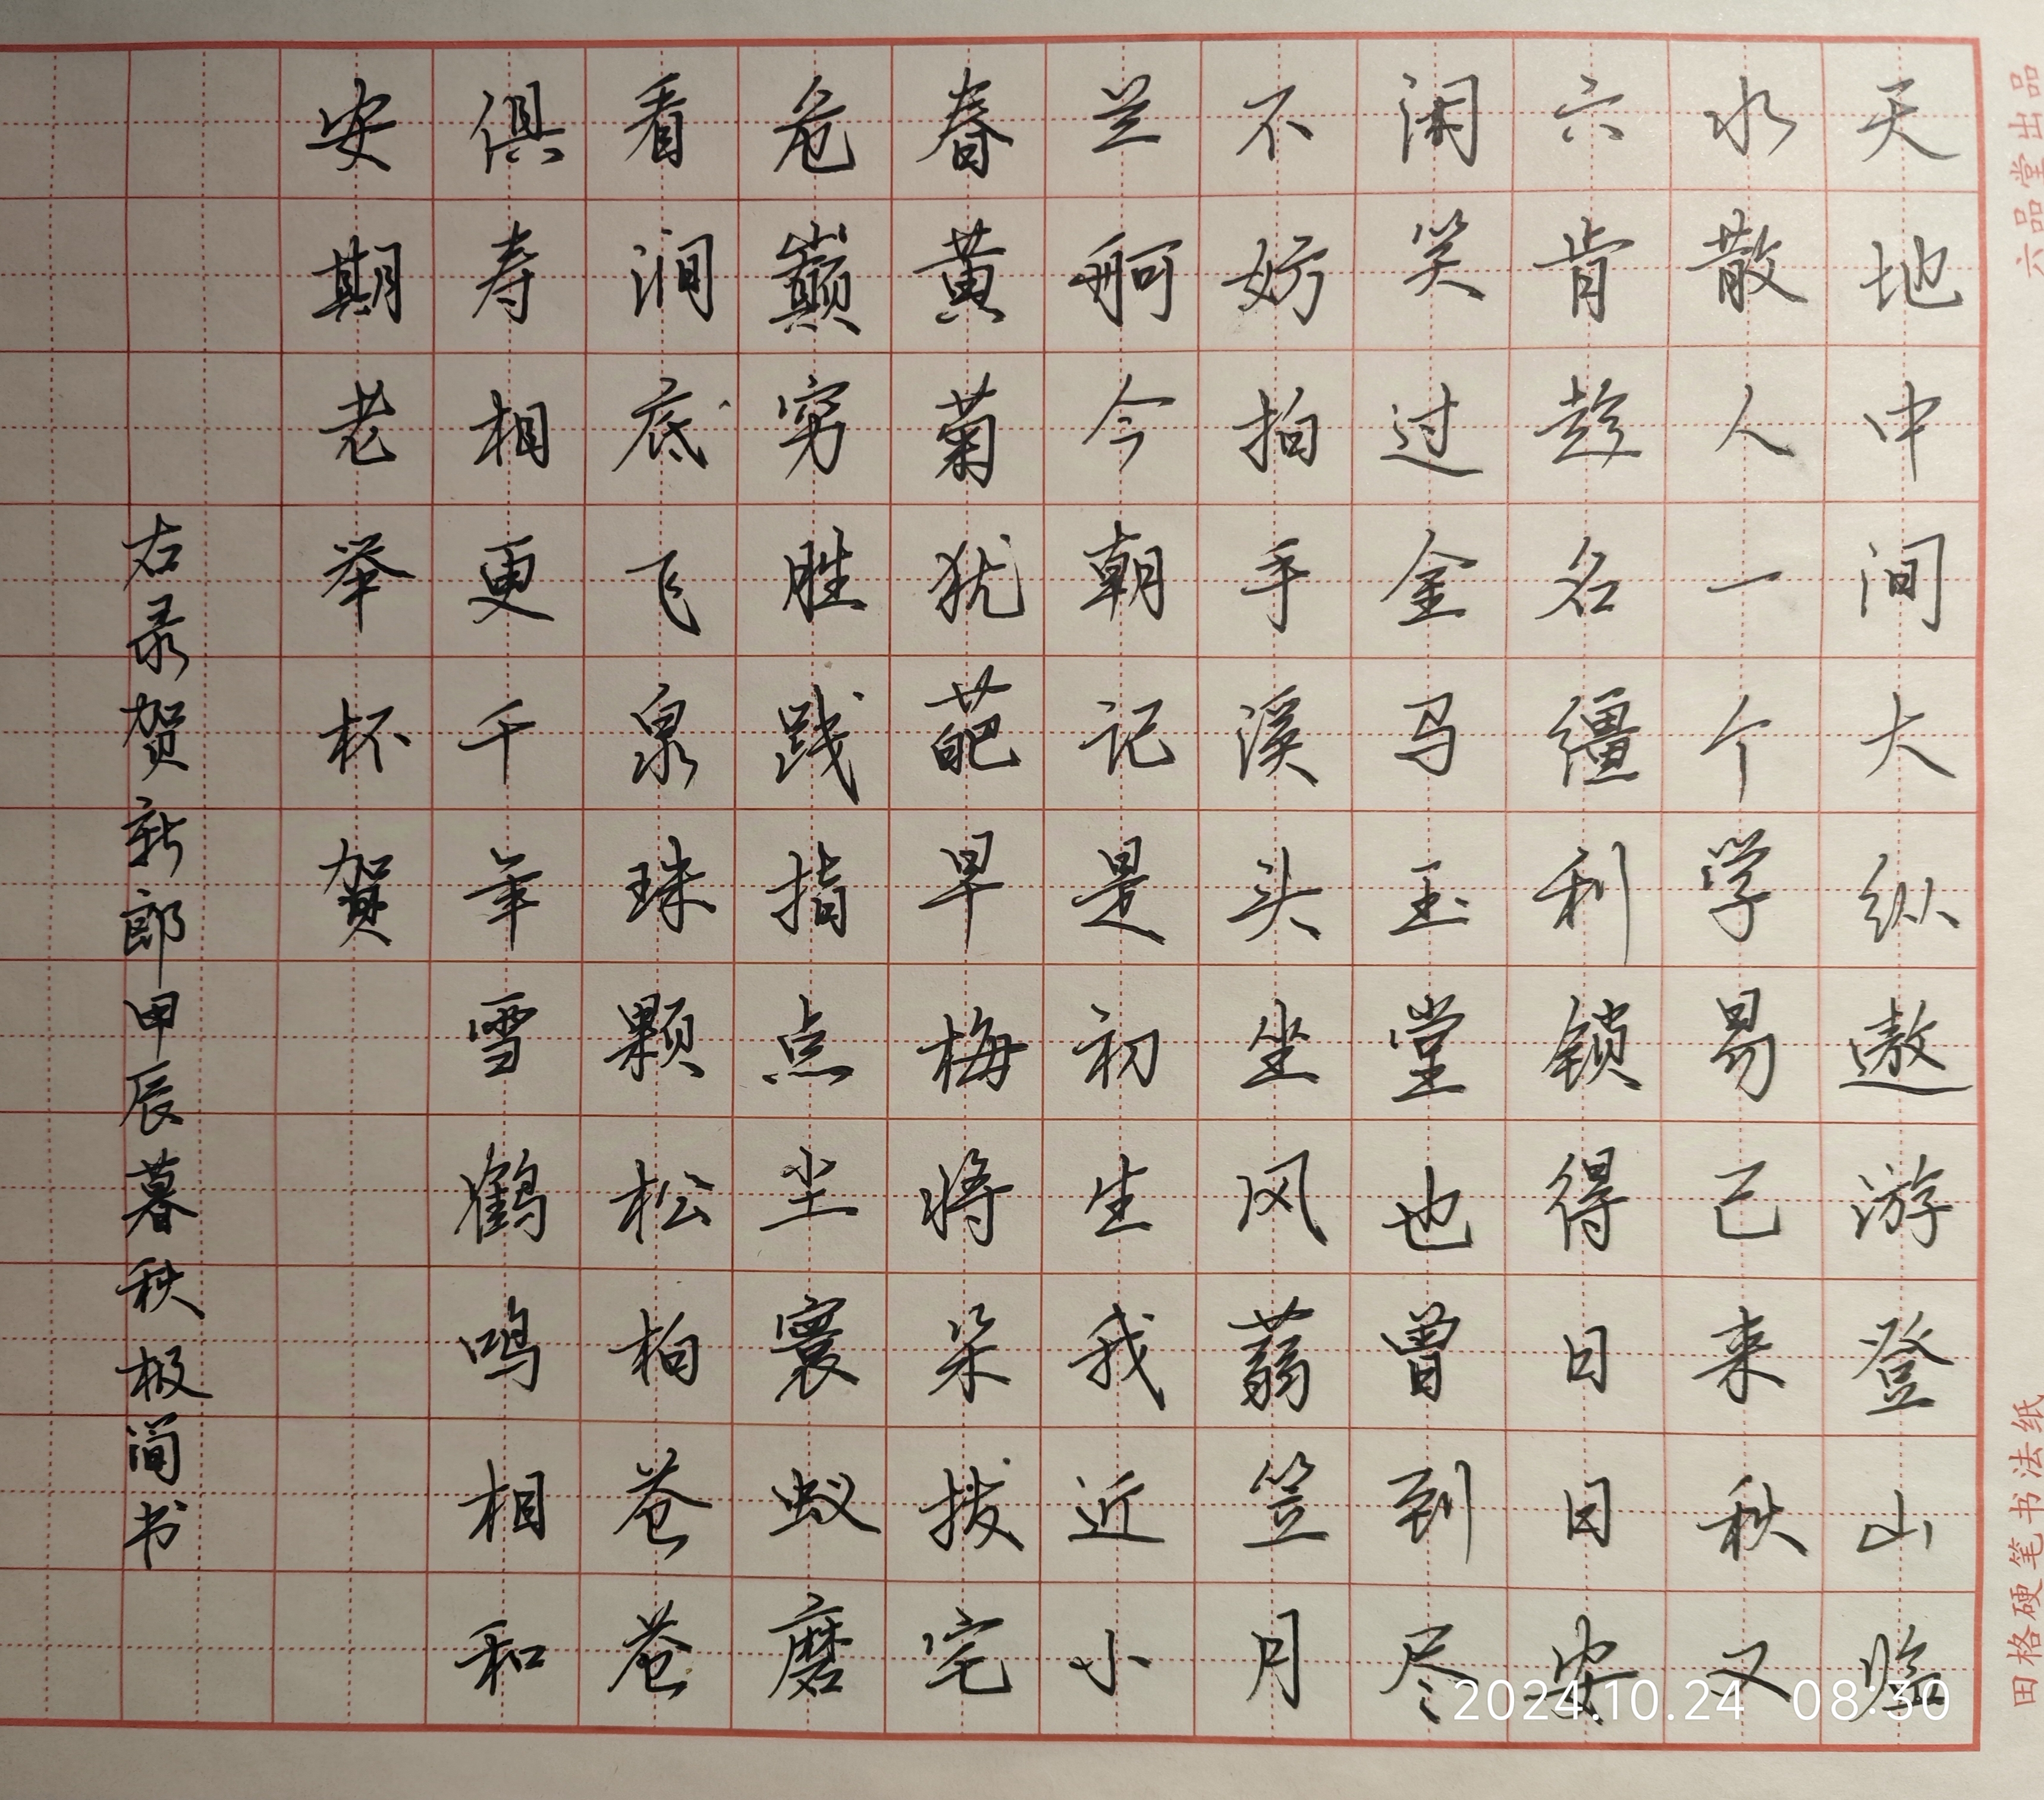 天地中间大纵遨游登山临
水散人一个学易已来秋又
六肯趁名缰利锁得日日安
闲笑过金马玉堂也曾到尽
不妨拍手溪头坐风蒻笠月
兰舸今朝记是初生我近小
春黄菊犹葩早梅将朵拔宅
危巅穷胜践指点尘寰蚁磨
看涧底飞泉珠颗松柏苍苍
俱寿相更千年雪鹤鸣相和
安期老举杯贺
右录贺新郎甲辰暮秋极简书
六品堂出品
田格硬笔书法纸
2024.10.24 08:30